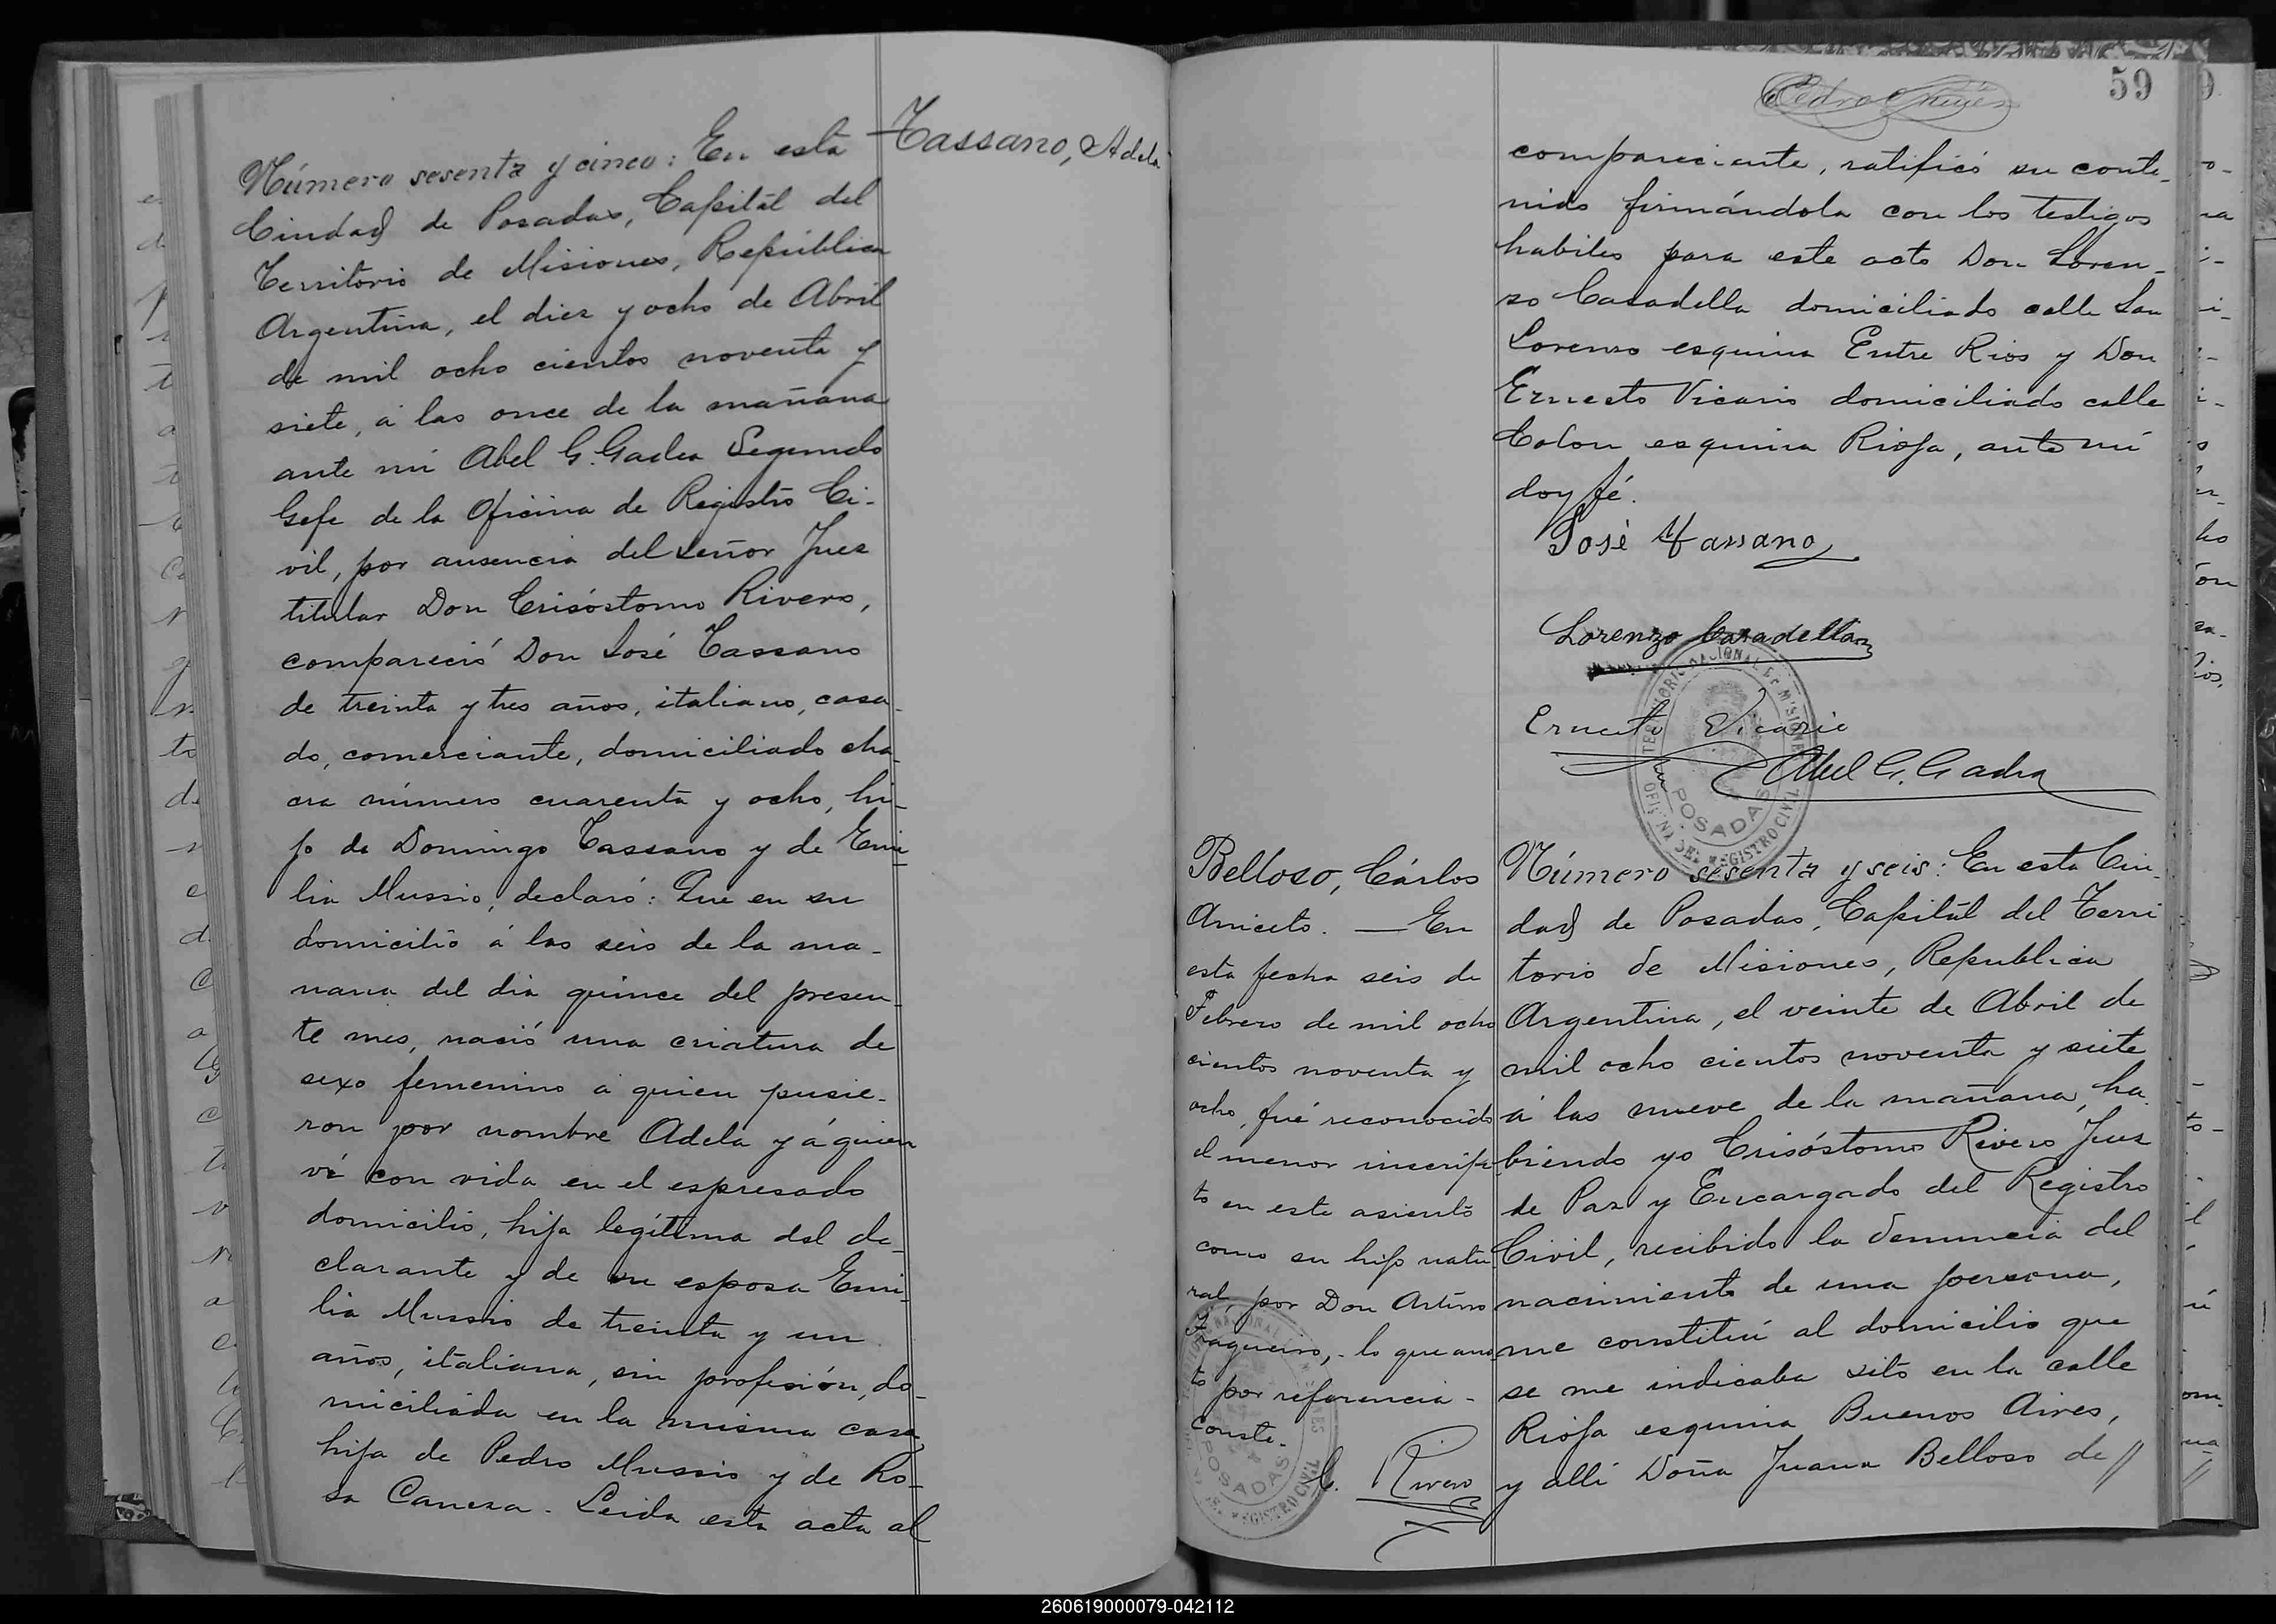 Tassano, Adela
Número sesenta y cinco: En esta
Ciudad de Posadas, Capital del
Territorio de Misiones, República
Argentina, el diez y ocho de Abril
de mil ocho cientos noventa y
siete, á las once de la mañana
ante mi Abel G. Gadea Segundo
Gefe de la Oficina de Registro Ci-
vil, por ausencia del Señor Juez
titular Don Crisóstomo Rivero,
compareció Don José Tassano
de treinta y tres años, italiano, casa-
do, comerciante, domiciliado cha-
cra número cuarenta y ocho, hi-
jo de Domingo Tassano y de Emi-
lia Mussio, declaró: Que en su
domicilio á las seis de la ma-
nana del dia quince del presen-
te mes, nació una criatura de
sexo femenino á quien pusie-
ron por nombre Adela y á quien
ví con vida en el espresado
domicilio, hija legítima del de-
clarante y de su esposa Emi-
lia Mussio de treinta y un
años, italiana, sin profesión, do-
miciliada en la misma casa,
hija de Pedro Mussio y de Ro-
sa Canesa. Leida esta acta al
59
compareciente, ratificó su conte-
nido firmándola con los testigos
habiles para este acto Don Loren-
zo Casadella domiciliado calle San
Lorenzo esquina Entre Rios y Don
Ernesto Vicario domiciliado calle
Colon esquina Rioja, ante mi
doy fé.
José Tassano
Lorenzo Casadella
Ernesto Vicario
Abel G. Gadea
TERRITORIO NACIONAL DE MISIONES
POSADAS
OFICINA DEL REGISTRO CIVIL
Belloso, Cárlos
Aniceto. — En
esta fecha seis de
Febrero de mil ocho
cientos noventa y
ocho, fué reconocido
el menor inscrip-
to en este asiento
como su hijo natu-
ral, por Don Arturo
Fragueiro, - lo que ano-
to por referencia -
Conste.
C. Rivero
POSADAS
DEL REGISTRO CIVIL
Número sesenta y seis: En esta Ciu-
dad de Posadas, Capital del Terri
torio de Misiones, Republica
Argentina, el veinte de Abril de
mil ocho cientos noventa y siete
á las nueve de la mañana, ha-
biendo yo Crisóstomo Rivero Juez
de Paz y Encargado del Registro
Civil, recibido la denuncia del
nacimiento de una persona,
me constituí al domicilio que
se me indicaba sito en la calle
Rioja esquina Buenos Aires,
y allí Doña Juana Belloso de //
260619000079-042112